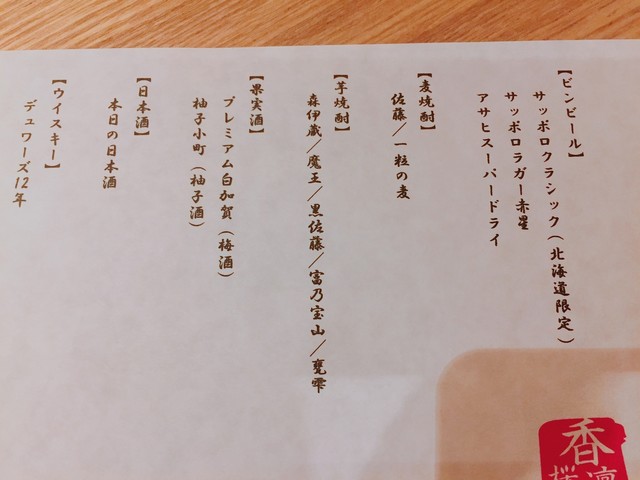 【ビンビール】
サッポロクラシック(北海道限定)
サッポロラガー赤星
アサヒスーパードライ
【麦焼酎】
佐藤/一粒の麦
【芋焼酎】
森伊蔵/魔王/黒佐藤/富乃宝山/甕雫
【果実酒】
プレミアム白加賀(梅酒)
柚子小町(柚子酒)
【日本酒】
本日の日本酒
【ウイスキー】
デュワーズ12年
香
凛